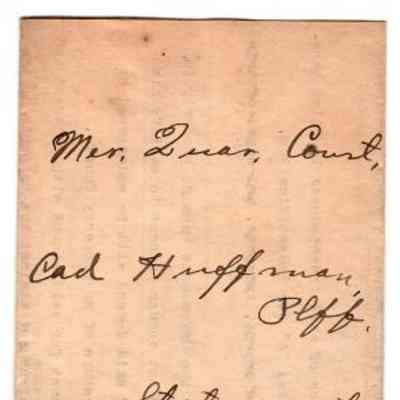 Mer. Quar. Court,
Cad Huffman,
Plff.